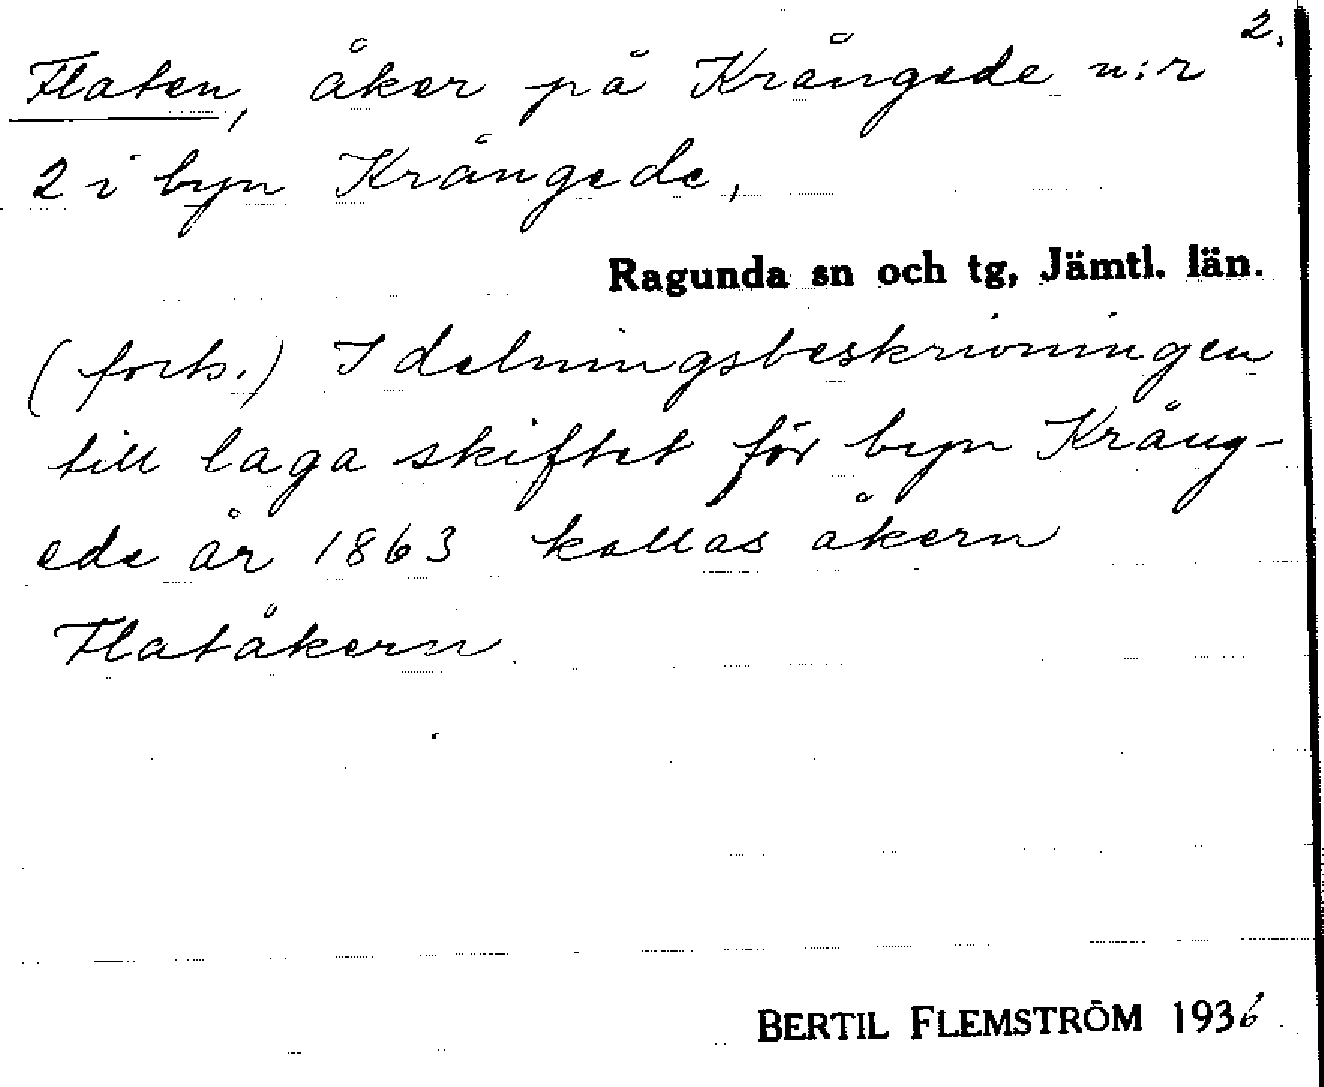 2.
Flaten, åker på Krångede n:r
2 i byn Krångede,
Ragunda sn och tg, Jämtl. län.
(forts.) I delningsbeskrivningen
till laga skiftet för byn Krång-
ede år 1863 kallas åkern
Flatåkern
BERTIL FLEMSTRÖM 1936